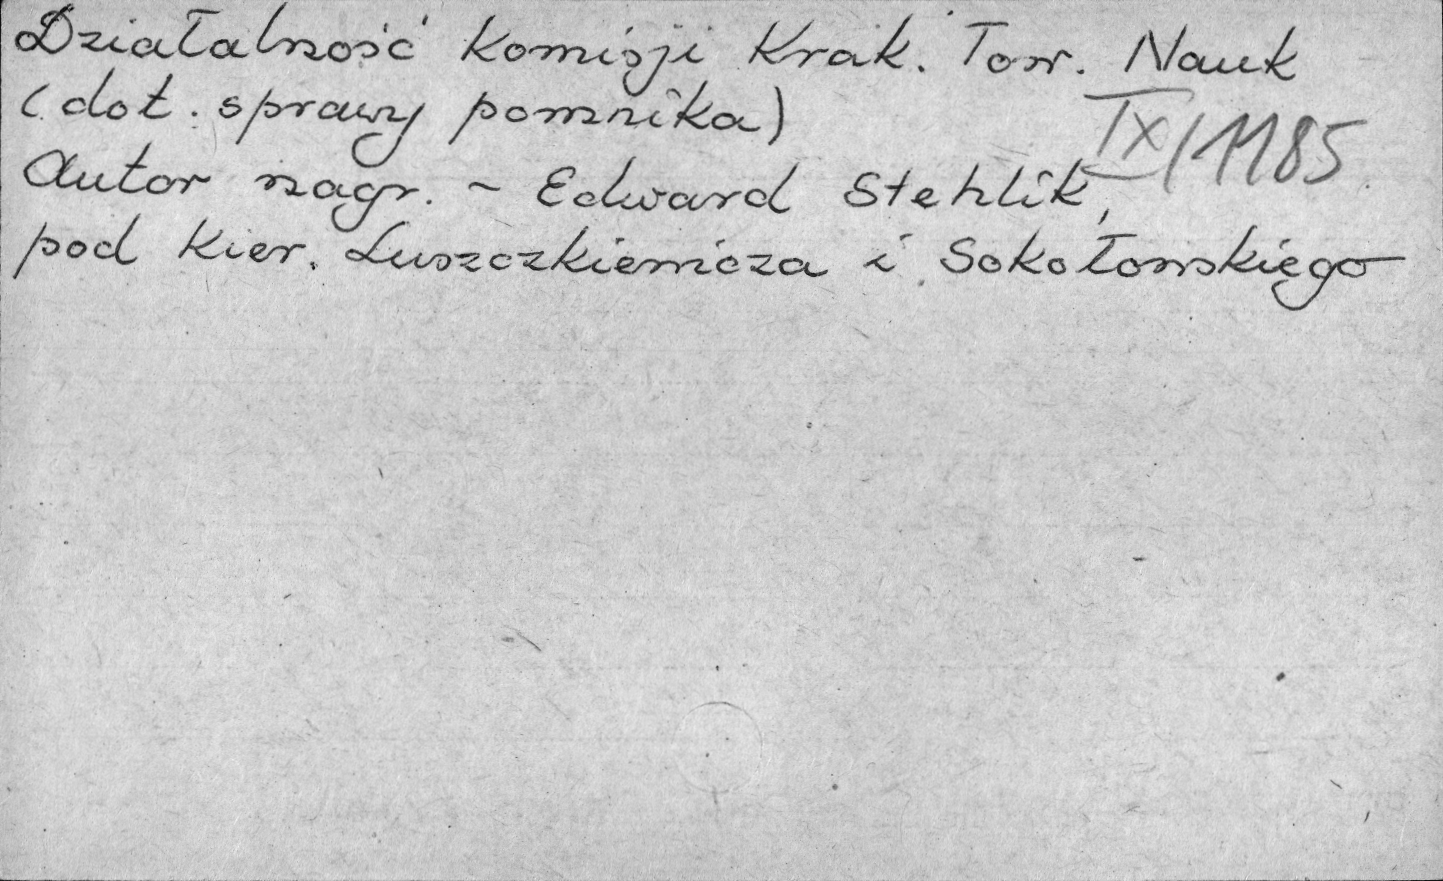 Działalność Komisji Krak. Tow. Nauk
(dot. sprawy pomnika)
IX/1185
Autor nagr. - Edward Stehlik,
pod kier. Łuszczkiewicza i Sokołowskiego